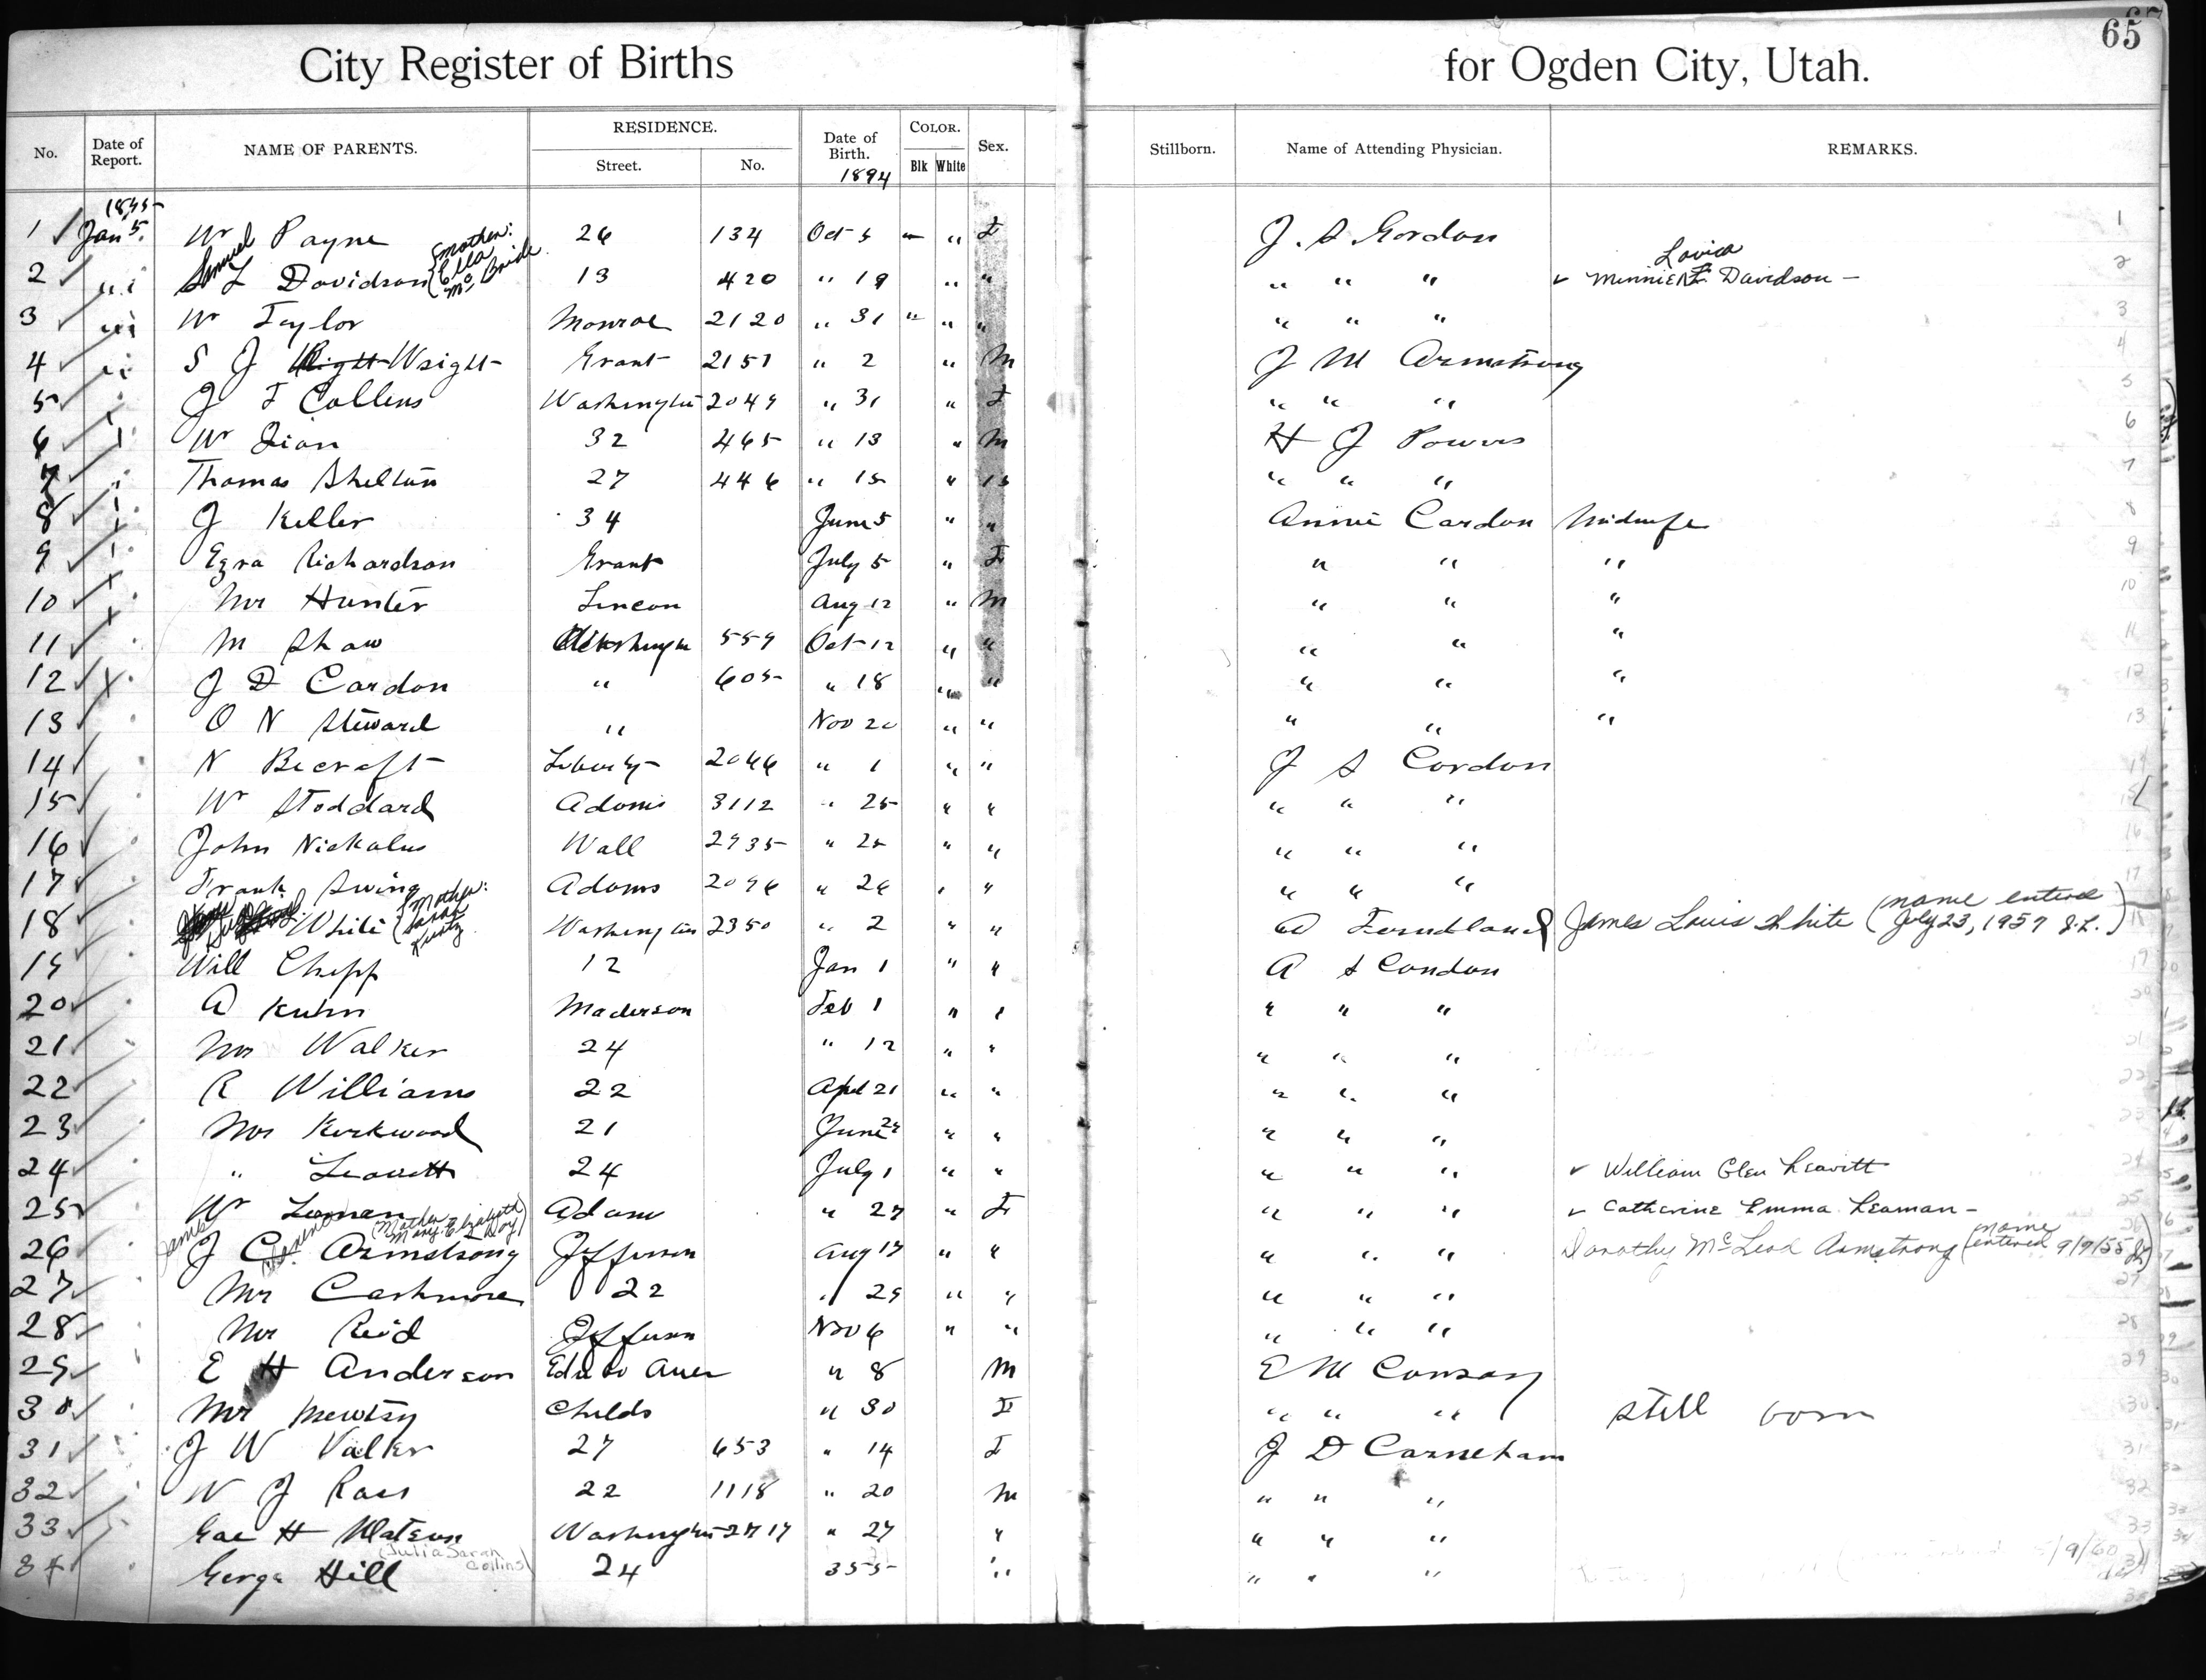 City Register of Births for Ogden City, Utah. 65
No. Date of Report. NAME OF PARENTS. RESIDENCE. Street. No. Date of Birth. 1894 COLOR. Blk White Sex. Stillborn. Name of Attending Physician. REMARKS.
1895
1 Jan 5. Mr Payne 26 134 Oct 5 " " F J. S Gordon 1
2 " Samuel L Davidson (Mother: Ella McBride 13 420 " 19 " " " " " Minnie Lovica Davidson - 2
3 " Mr Taylor Monroe 2120 " 31 " " " " " " 3
4 " S J Wright Grant 2151 " 2 " M J M Armstrong 4
5 J F Collens Washington 2049 " 31 " F " " " 5
6 Mr 32 465 " 13 " M H J Powers 6
7 Thomas Shelton 27 446 " 15 " " " " 7
8 J Keller 34 June 5 " " Annie Cardon Midwife 8
9 Ezra Richardson Grant July 5 " F " " " 9
10 Mr Hunter Lincon Aug 12 " M " " " 10
11 M Shaw Washington 559 Oct 12 " " " " " 11
12 J D Cardon " 605 " 18 " " " " " 12
13 O N Steward " Nov 20 " " " " " 13
14 N Becraft Liberty 2066 " 1 " " J S Cordon 14
15 Mr Stoddard Adams 3112 " 25 " " " " " 15
16 John Nickolus Wall 2935 " 25 " " " " " 16
17 Frank Swing Adams 2096 " 26 " " " " " 17
18 White (Mother: Sarah Kuntz Washington 2350 " 2 " " James Louis White (name entered July 23, 1957 J.L.) 18
19 Will Chipp 12 Jan 1 " " A S Condon 19
20 A Kuhn Maderson Feb 1 " " " " " 20
21 Mr Walker 24 " 12 " " " " " 21
22 R Williams 22 Apl 21 " " " " " 22
23 Mr Kirkwood 21 June " " " " " 23
24 " Leavitt 24 July 1 " " " " " William Glen Leavitt 24
25 Mr Adams " 27 " F " " " Catherine Emma Leaman - 25
26 James J C Armstrong (Mother Mary Elizabeth Jefferson Aug 17 " " " " " Dorothy McLeod Armstrong (name entered 9/9/55 26
27 Mr Cashmore 22 " 29 " " " " " 27
28 Mr Reid Jefferson Nov 6 " " " " " 28
29 E H Anderson " 8 M E M Conroy 29
30 Mr Childs " 30 F " " " Still born 30
31 J W Valker 27 653 " 14 F J D Carneham 31
32 W J Ross 22 1118 " 20 M " " " 32
33 Geo H Watson Washington 2717 " 27 " " " " 33
34 George Hill (Julia Sarah Collins) 24 355 " " " " /9/60) 34